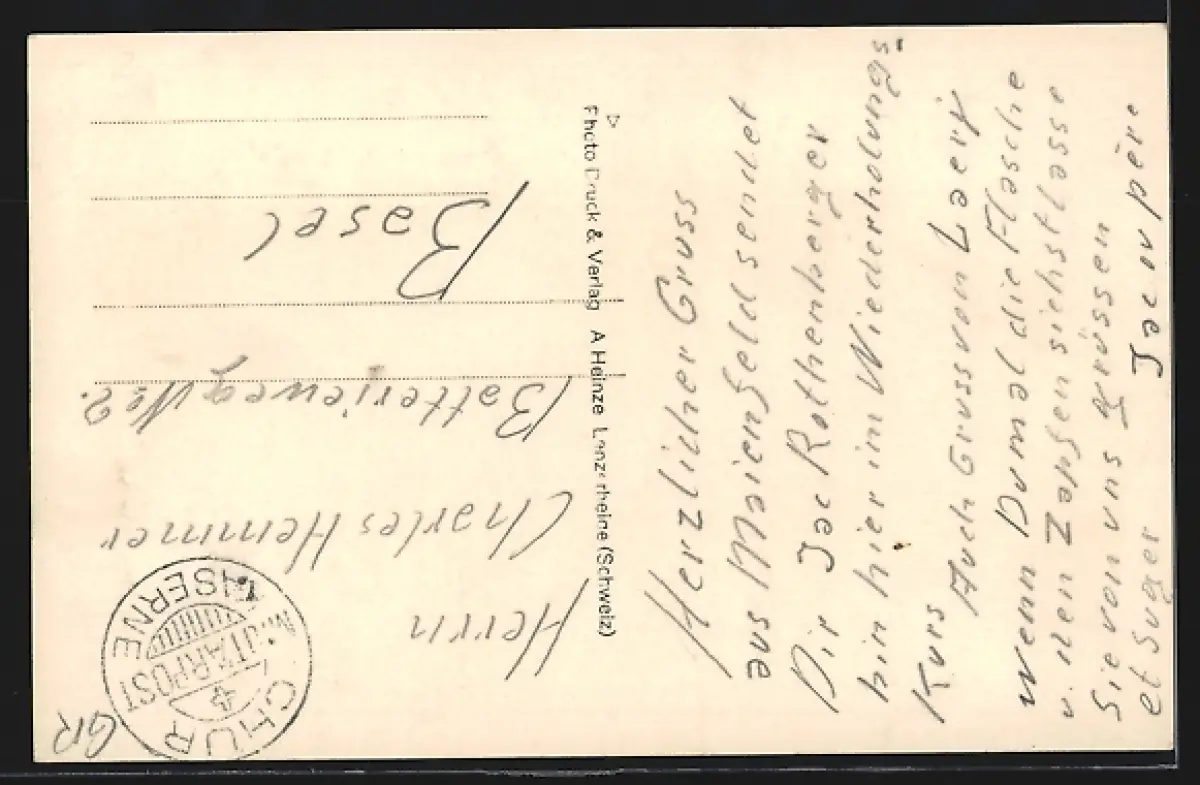 Herzlicher Gruss
aus Maienfeld sendet
Dir Jac Rothenberger
bin hier im Wiederholungs
Kurs
Auch Gruss von Laeri
wenn Du mal die Flasche
u. den Zapfen siehst lasse
Sie von uns grüssen
et Suger
Jac ou père
Photo Druck & Verlag A Heinze Lenzerheide (Schweiz)
Herrn
Charles Hemmer
Batterieweg No 2.
Basel
CHUR
MILITÄRPOST
KASERNE
GR